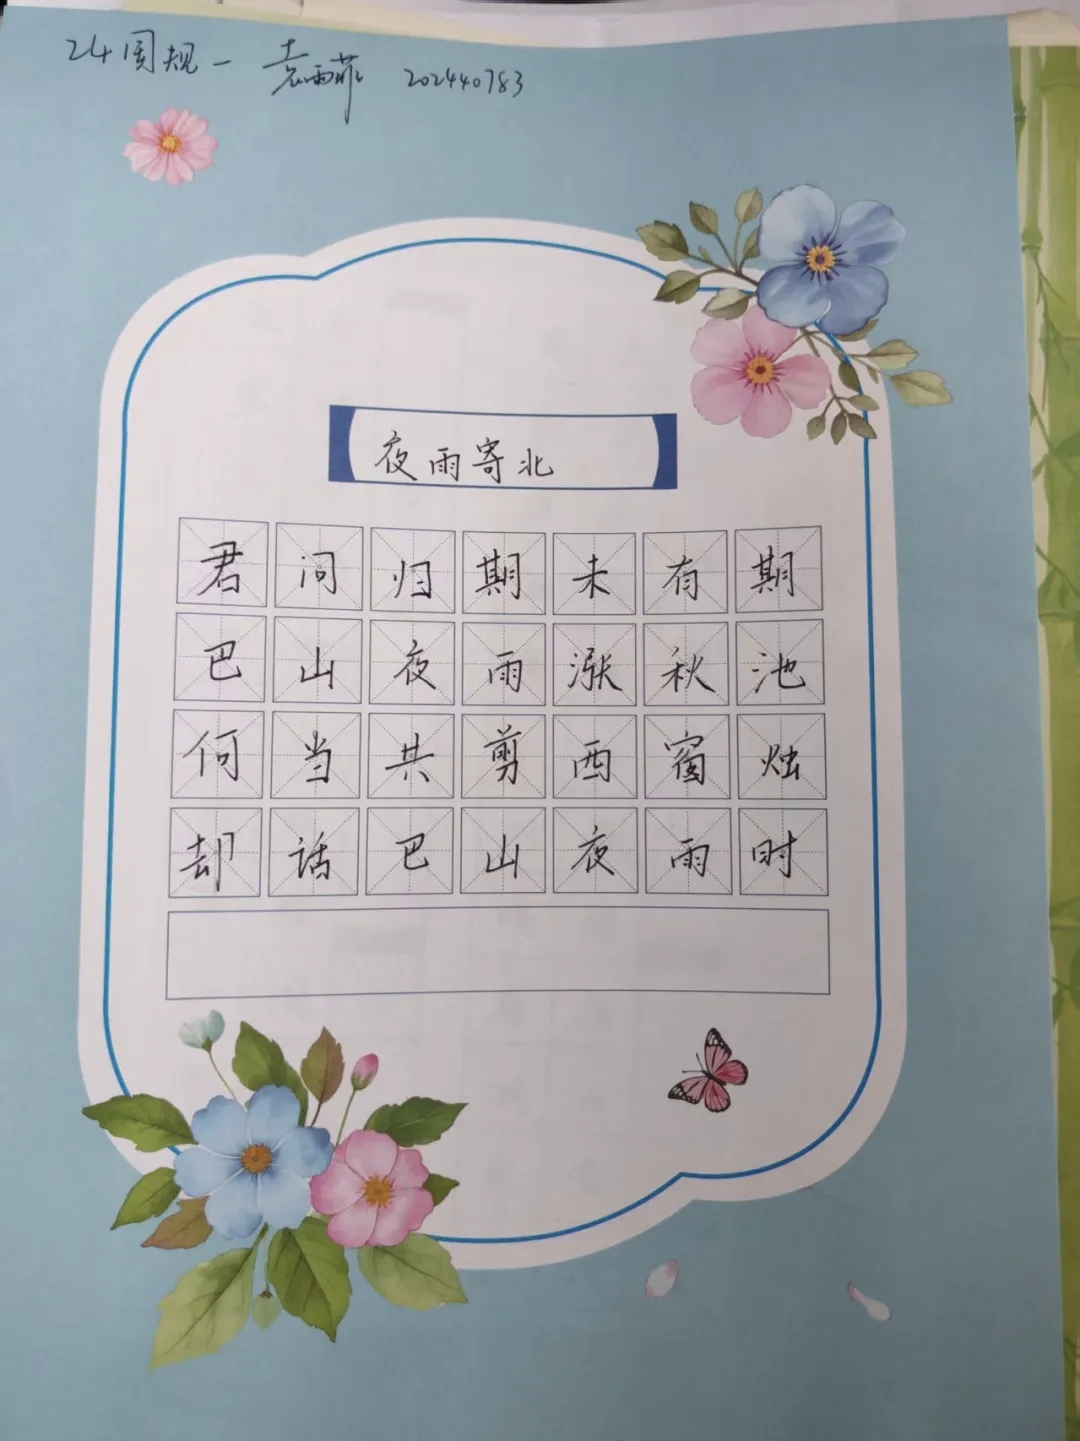 24国规一 袁雨菲 202440783
夜雨寄北
君问归期未有期
巴山夜雨涨秋池
何当共剪西窗烛
却话巴山夜雨时